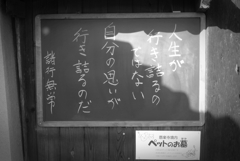 人生が
行き詰るの
ではない
自分の思いが
行き詰るのだ
諸行無常
ペットのお墓